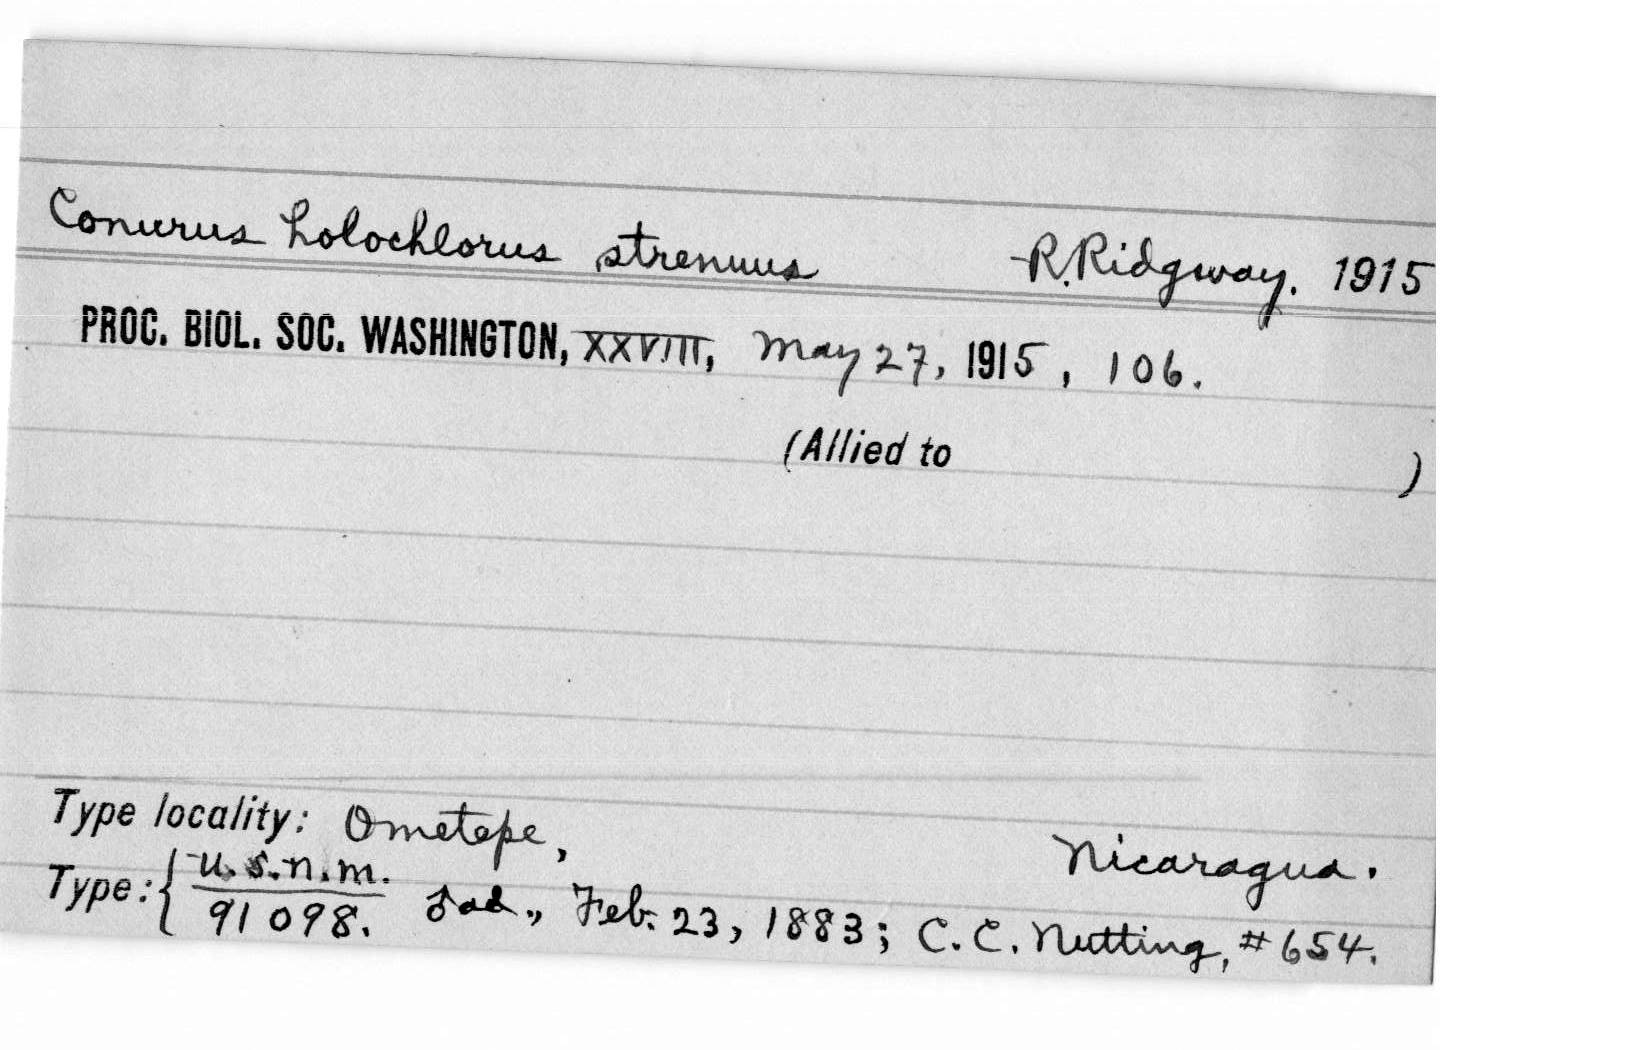 Conurus holochlorus strenuus R. Ridgway. 1915
PROC. BIOL. SOC. WASHINGTON, XXVIII, May 27, 1915, 106.
(Allied to )
Type locality: Ometepe, Nicaragua.
Type: { U.S.N.M. / 91098. ♂ ad., Feb. 23, 1883; C. C. Nutting, #654.